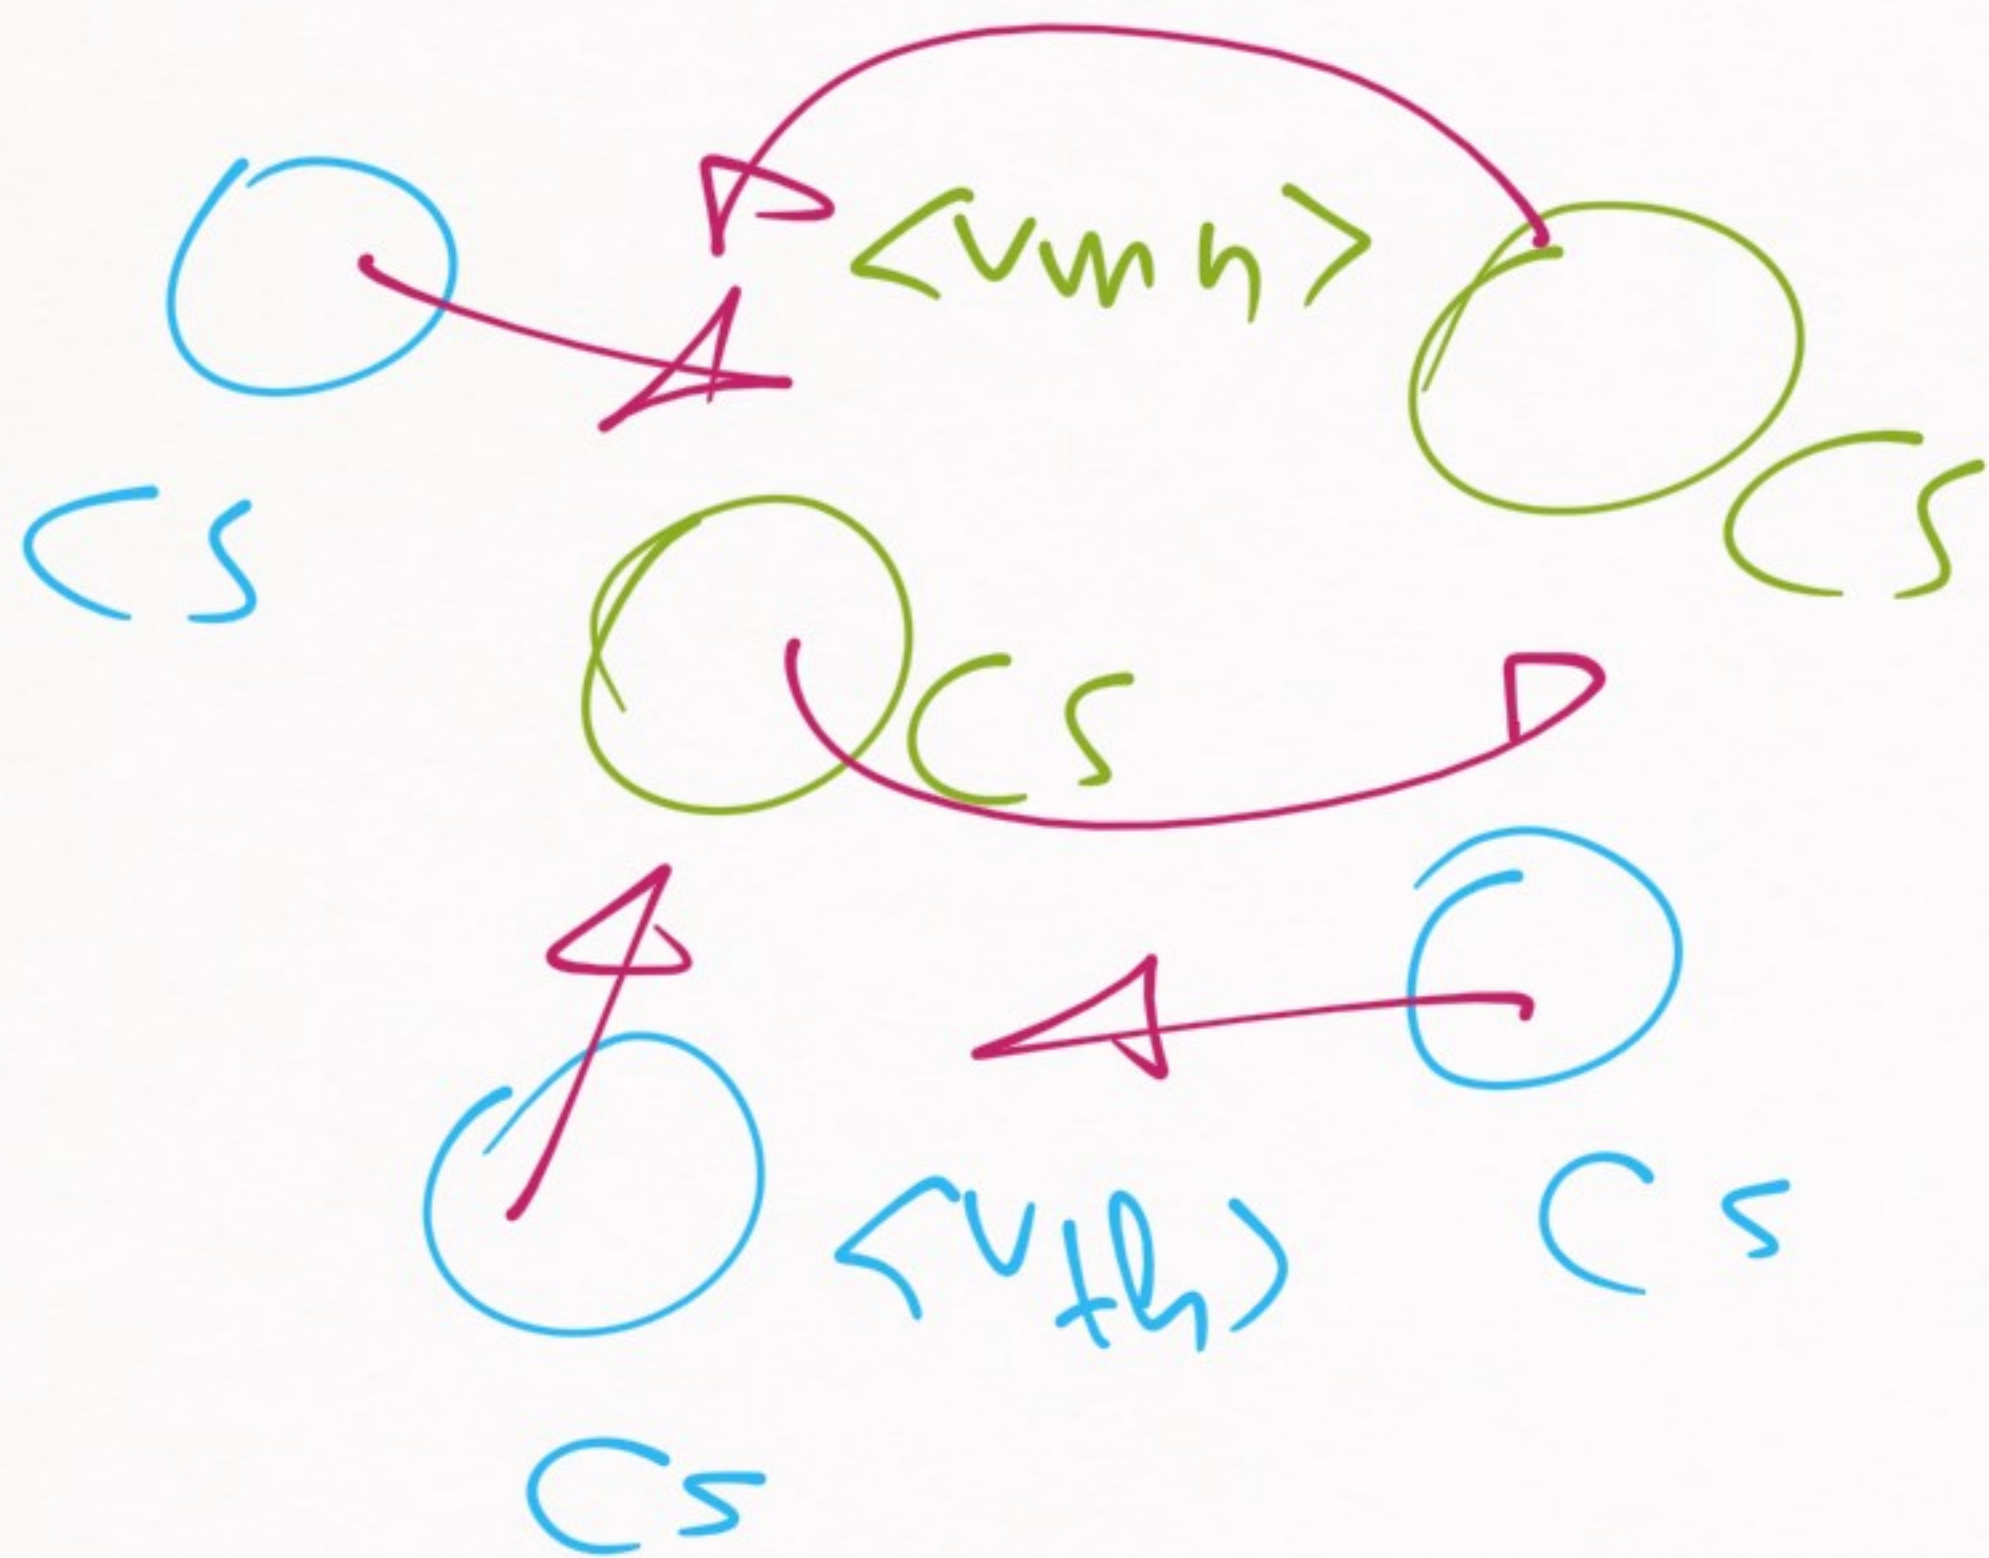 <vmn>
Cs
Cs
Cs
<vth>
Cs
Cs